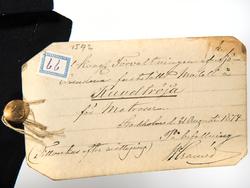 1592
Kongl. Förvaltningen af Sjö-
ärendena fastställt Modell å
Rundtröja
för Matroser.
Stockholm d. 21 Augusti 1874
På befallning
(Tillverkas efter måttagning)
66